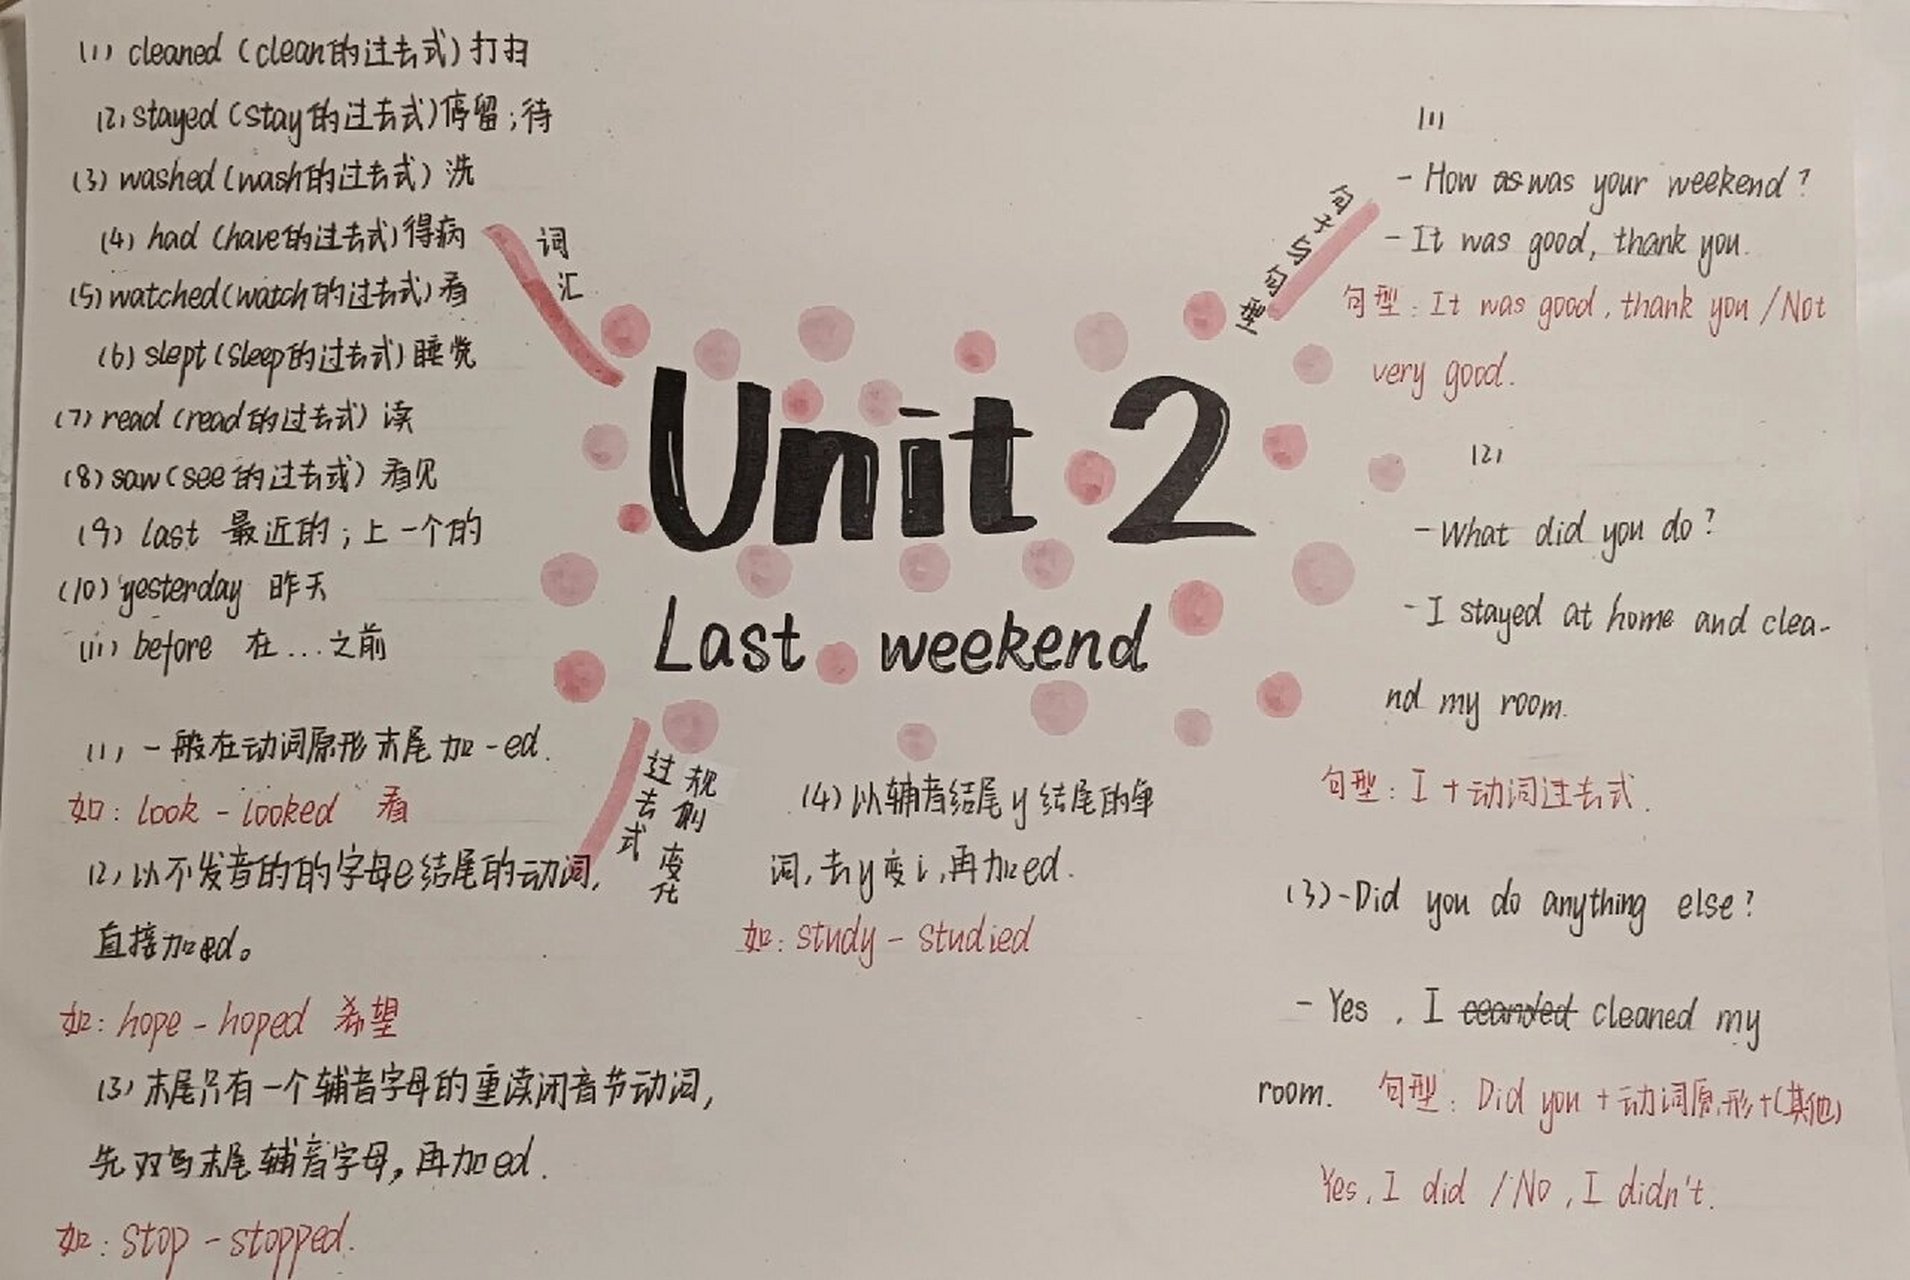 Unit 2
Last weekend
词汇
(1) cleaned (clean的过去式) 打扫
(2) stayed (stay的过去式) 停留;待
(3) washed (wash的过去式) 洗
(4) had (have的过去式) 得病
(5) watched (watch的过去式) 看
(6) slept (sleep的过去式) 睡觉
(7) read (read的过去式) 读
(8) saw (see的过去式) 看见
(9) last 最近的;上一个的
(10) yesterday 昨天
(11) before 在...之前
过去式
规则变化
(1) 一般在动词原形末尾加-ed.
如: look - looked 看
(2) 以不发音的的字母e结尾的动词,
直接加ed。
如: hope - hoped 希望
(3) 末尾只有一个辅音字母的重读闭音节动词,
先双写末尾辅音字母,再加ed.
如: stop - stopped.
(4) 以辅音结尾y结尾的单
词,去y变i,再加ed.
如: study - studied
句子与句型
(1)
- How as was your weekend?
- It was good, thank you.
句型: It was good, thank you / Not
very good.
(2)
- What did you do?
- I stayed at home and clea-
nd my room.
句型: I + 动词过去式.
(3) - Did you do anything else?
- Yes, I cleaned my
room. 句型: Did you + 动词原形+(其他)
Yes, I did / No, I didn't.